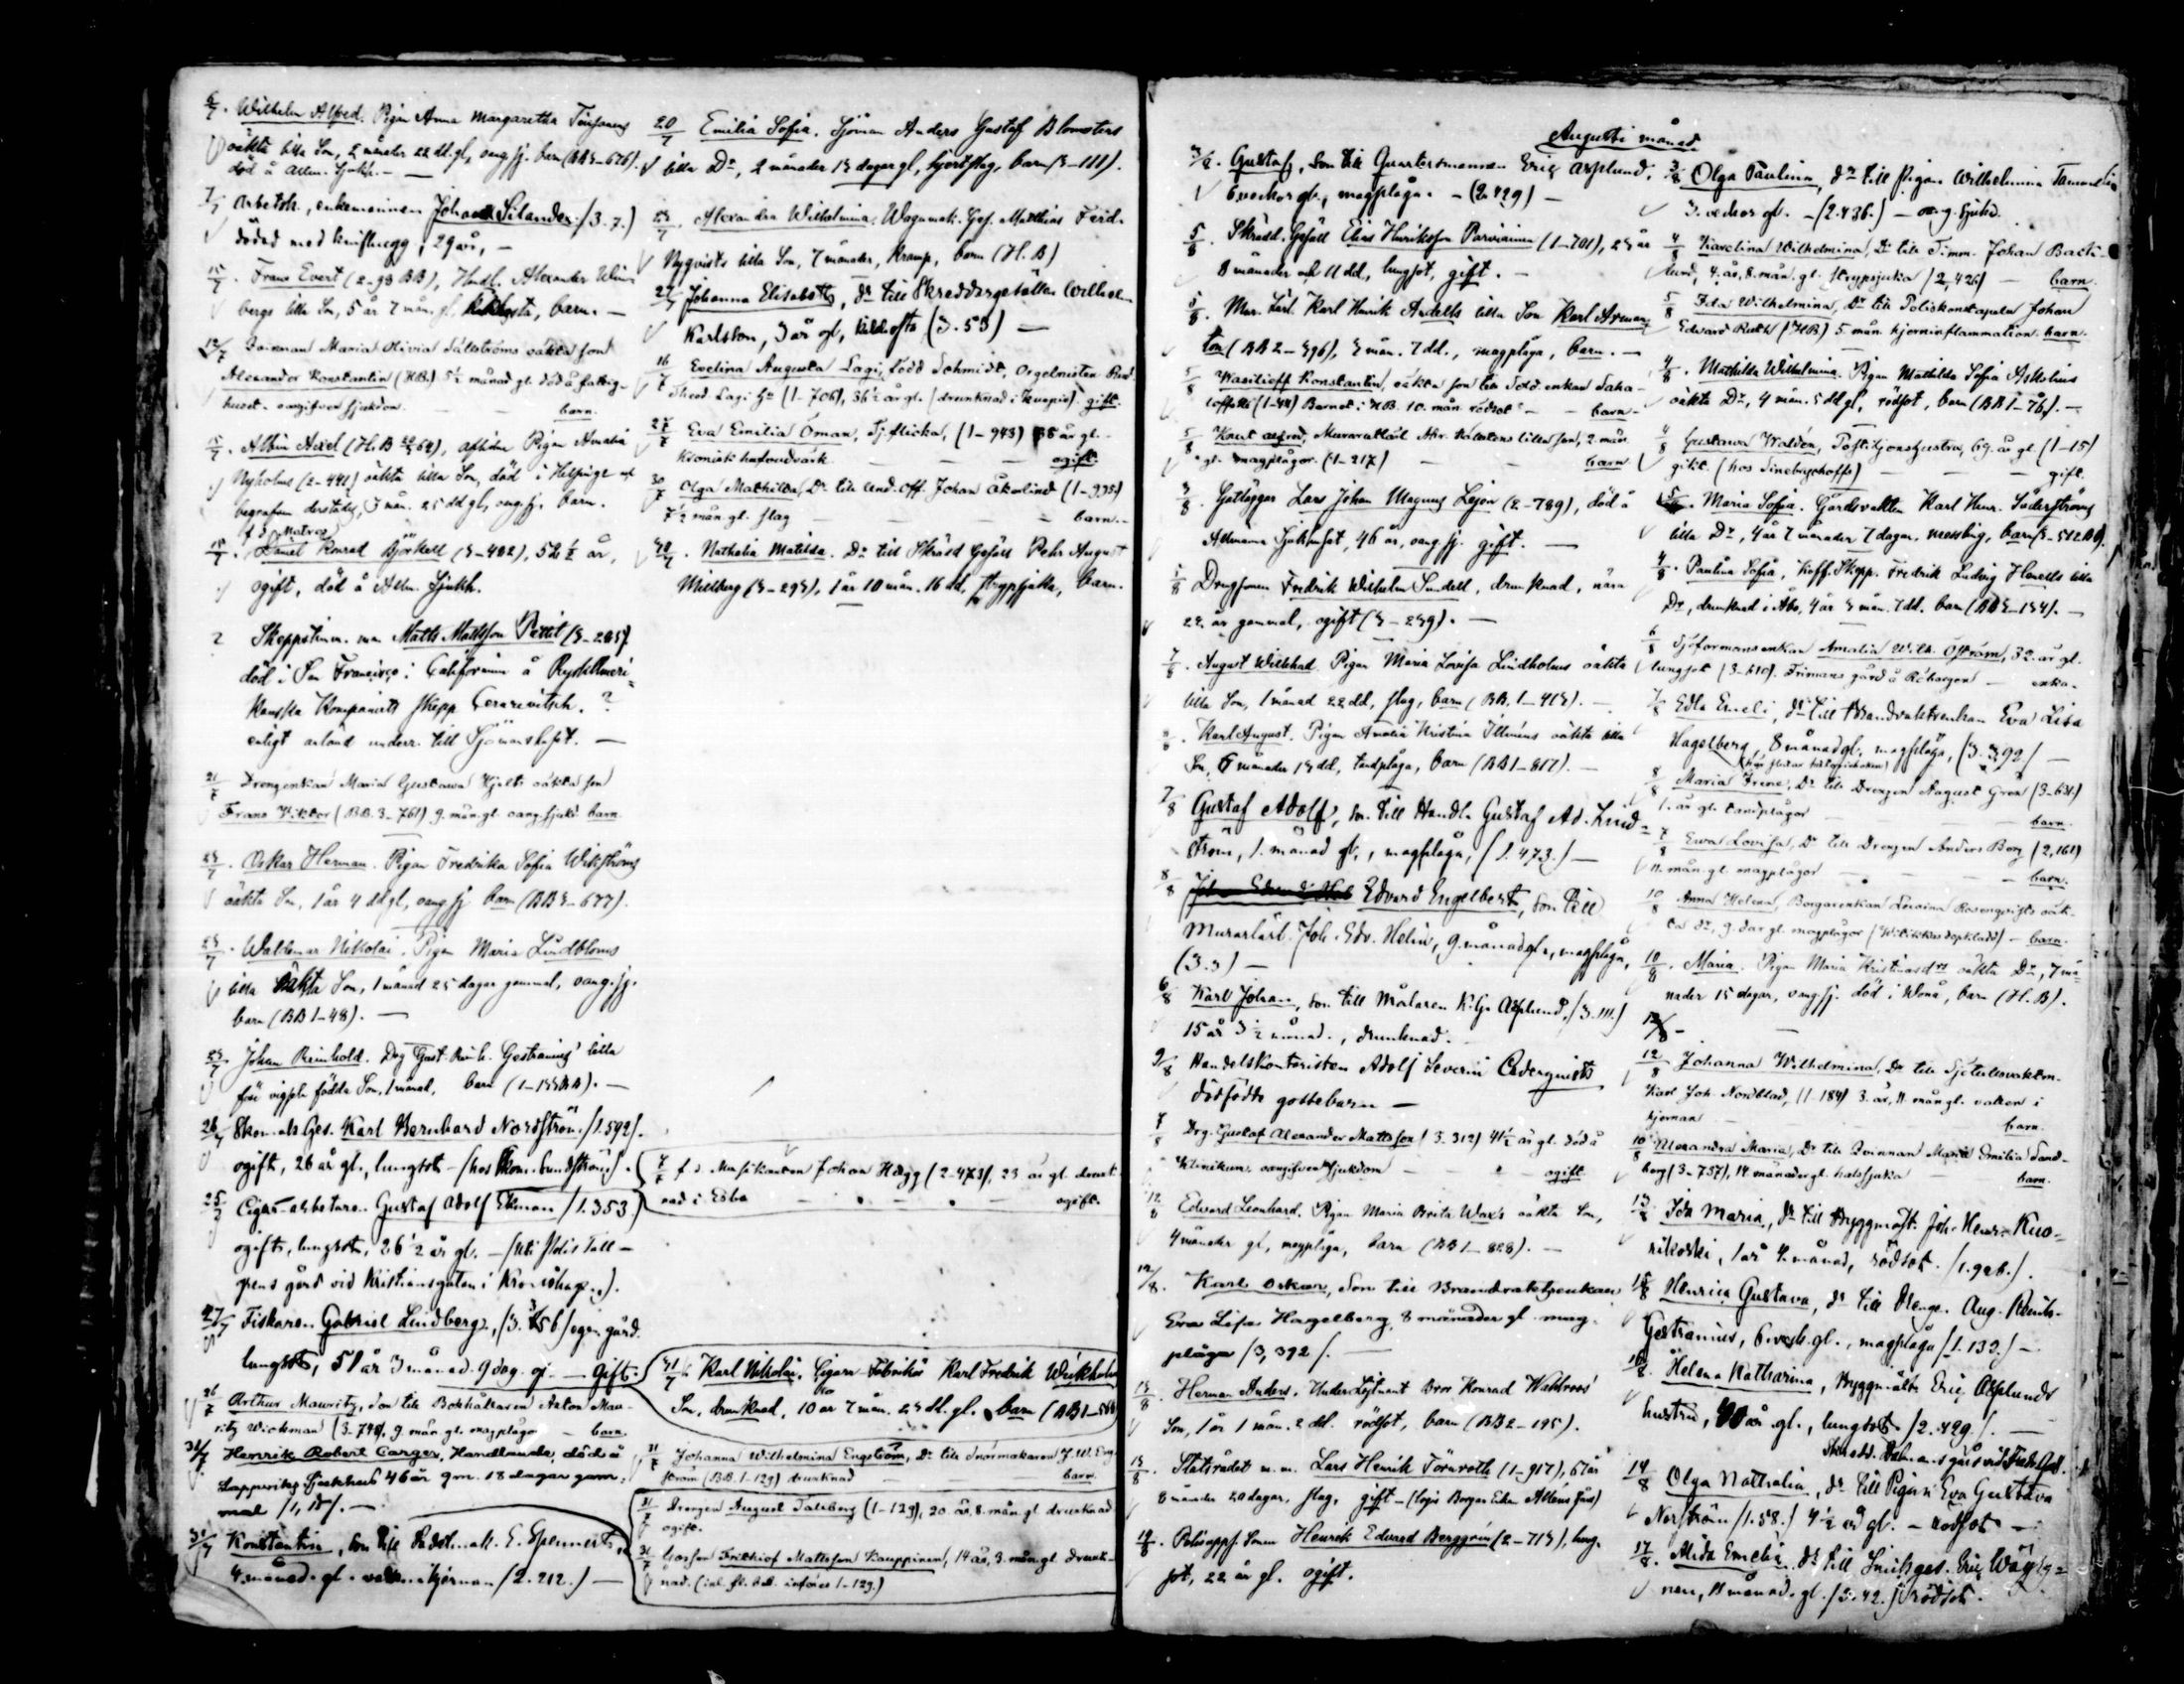 6/7. Wilhelm Alfred. Pigan Anna Margaretha
oäkta lilla Son, 2 månader 22 dd. gl, oang. sj. barn (BB3-676).
död å Allm. Sjukh. —
7/7 Arbetsk., enkemannen Johan Silander (3.7.)
dödad med knifhugg, 29 år, —
15/7. Frans Evert (2-98 BB), Handl. Alexander
bergs lilla Son, 5 år 7 mån. gl, barn. —
12/7 Qvinnan Maria Olivia Sällströms oäkta son
Alexander Konstantin (H.B.) 5½ månad gl. död å fattig-
huset. oangifven sjukdom. — barn.
15/7. Albin Axel (H.B. 64), aflidne Pigan Amalia
Nyholms (2-441) oäkta lilla Son, död i Helsinge och
begrafven derstädes, 3 mån. 25 dd gl, oang. sj. barn.
f.d. Matros
15/7. Daniel Konrad Björkell (3-482), 52½ år,
ogift, död å Allm. Sjukh.
? Skeppstimm. man Matts Mattsson Pettit (3-205)
död i San Francisco i Californien å Rysk Ameri-
kanska Kompaniets skepp Cesarevitsch. ?
enligt anländ underr. till Sjömanshuset. —
21/7 Drengenkan Maria Gustava Hjelts oäkta son
Frans Viktor (BB. 3-761) 9. mån. gl. oang. sjukd. barn.
23/7. Oskar Herman. Pigan Fredrika Sofia Wikströms
oäkta Son, 1 år 4 dd gl, oang sj barn (BB3-677).
23/7. Waldemar Nikolai. Pigan Maria Lindbloms
lilla oäkta Son, 1 månad 25 dagar gammal, oang. sj.
barn (BB1-48). —
23/7. Johan Reinhold. Drg Gust. Reinh. Gestranius' lilla
före vigseln födda Son, 1 månad, barn (1-133BB). —
26/7 Skom. Ges. Karl Bernhard Nordström (1.592).
ogift, 26 år gl., lungsot — (hos Skom. Sundström).
25/7 Cigarr-arbetaren Gustaf Adolf Ekman (1.353)
ogift, lungsot, 26½ år gl. — (uti Polis Tall-
grens gård vid Kristiansgatan i Kronohagen).
27/7 Fiskaren Gabriel Lindberg, (3.356) egen gård.
lungsot, 51 år 3 månad. 9 dag. gl. — Gift.
26/7 Arthur Mauritz, Son till Bokhållaren Anton Mau-
ritz Wickman (3-794), 9. mån. gl. magplågor — barn.
31/7. Henrik Robert Carger, Handlande, död å
Lappviks Sjukhus 46 år 9 m. 18 dagar gam-
mal —
31/7 Konstantin, Son till E. Spennert,
4. månad. gl. — vatten i hjernan (2.212.) —
20/7 Emilia Sofia. Sjöman Anders Gustaf Blomsters
lilla Dr, 2 månader 13 dagar gl, hjertslag, barn (3-111).
23/7. Alexandra Wilhelmina. Wagnmak. Ges. Matthias Ferd.
Nyqvists lilla Son, 7 månader, kramp, barn (H.B)
27/7 Johanna Elisabeth, Dr till Skreddaregesällen Wilhelm
Karlsson, 3 år gl, kikhosta (3.53) —
16/7 Evelina Augusta Lagi, född Schmidt, Orgelnisten Rud.
Theod. Lagi Hu (1-706), 36½ år gl. (drunknad i Kuopio) gift.
27/7 Eva Emilia Öman, Tj. flicka, (1-943) 35 år gl.
Kroniskt hufvudvärk — ogift.
30/7 Olga Mathilda, Dr till Und. Off. Johan Åkerlind (1-935)
7½ mån. gl. slag — barn.
30/7. Nathalia Matilda. Dr till Skrädd Gesäll Pehr August
Millberg (3-293), 1 år 10 mån. 16 dd, strypsjuka, barn.
7/7 f.d. Musikanten Johan Hägg (2-473), 23 år gl. drunk-
nad i Esbo — ogift.
31/7. Karl Nikolai. Cigarr Fabrikör Karl Fredrik Wickholm
Son, drunknad, 10 år 7 mån. 23 dd. gl. barn (BB1-568)
31/7 Johanna Wilhelmina Engström, Dr till Snörmakaren J. W. Eng-
ström (BB. 1-129) drunknad — barn.
31/7 Drengen August Talsberg (1-129), 20 år, 8. mån. gl drunknad
ogift.
31/7 Gossen Frithiof Mattsson Kauppinen, 14 år, 3. mån. gl. drunk-
nad. (införes 1-129.)
Augusti månad
3/8. Gustaf, Son till Quartersmannen Eric Asplund,
6 veckor gl., magplåga. — (2.429) —
5/8. Skrädd. Gesäll Elias Henriksson Parviainen (1-701), 23 år
8 månader och 11 dd, lungsot, gift. —
5/8. Mur. Lärl. Karl Henrik Andells lilla Son Karl Arman-
ton (BB 2-396), 3 mån. 7 dd., magplåga, barn. —
5/8 Wasilieff Konstantin, oäkta son till Sold enkan Saha-
loffski (1-44) Barnet i H.B. 10. mån. rödsot — barn.
5/8 Knut Alfred, Murarelärl. lilla son, 2. mån.
gl. magplågor. (1-217) — barn
3/8. Gatlyggar Lars Johan Magnus Lejon (2-789), död å
Allmänna Sjukhuset, 46 år, oang. sj. gift. —
1/8 Drngsonen Fredrik Wilhelm Sundell, drunknad, nära
22 år gammal, ogift (3-239). —
7/8. August Willehad. Pigan Maria Lovisa Lindholms oäkta
lilla Son, 1 månad 22 dd, slag, barn (BB. 1-413). —
Karl August. Pigan Amalia Kristina Illméns oäkta lilla
Son, 6 månader 13 dd, tandplåga, barn (BB1-817). —
7/8 Gustaf Adolf, Son till Handl. Gustaf Ad. Lind-
ström, 1. månad gl., magplåga, (1.473.) —
8/8 Edvard Engelbert, Son till
Murarlärl. Joh. Edv. Helin, 9. månad gl., magplåga,
(3.3) —
6/8 Karl Johan, Son till Målaren K. Gr. Asplund, (3.111.)
15 år 3½ månad., drunknad.
9/8 Handelskontoristen Adolf Severin Cederqvists
dödfödte gossebarn —
7/8 Drg. Gustaf Alexander Mattsson (3.312) 41½ år gl. död å
Klinikum. oangifven sjukdom — ogift
12/8 Edvard Leonhard. Pigan Maria Brita Wax's oäkta Son,
4 månader gl, magplåga, barn (BB1-828). —
12/8. Karl Oskar, Son till Brandvaktsenkan
Eva Lisa Hagelberg, 8 månader gl mag-
plåga (3,392). —
13/8. Herman Anders. Under Löjtnant Bror Konrad Wahlroos'
Son, 1 år 1 mån. 2 dd. rödsot, barn (BB2-195).
13/8. Statsrådet m.m. Lars Henrik Törnroth (1-917), 67 år
8 månader 20 dagar, slag, gift —
12/8. Polisupps. Sonen Henrik Edvard Berggrén (2-713), lung-
sot, 22 år gl. ogift.
3/8 Olga Paulina, Dr till Pigan Wilhelmina
3. veckor gl. — (2.436.) — oang. sjukd.
4/8 Karolina Wilhelmina, Dr till Timm. Johan Back-
lund, 4. år, 8. mån. gl. strypsjuka (2,426) — barn.
5/8 Ida Wilhelmina, Dr till Poliskonstapeln Johan
Edvard Ruth (H.B) 5. mån. hjerninflammation. barn.
4/8. Mathilda Wilhelmina. Pigan Mathilda Sofia Askolins
oäkta Dr, 4 mån. 5 dd gl, rödsot, barn (BB1-76). —
4/8 Gustava Waldén, Postiljonshustru, 69. år gl. (1-15)
gikt. (hos Sinebrychoffs) — gift.
Maria Sofia. Gårdsvakten Karl Henr. Söderströms
lilla Dr, 4 år 7 månader 7 dagar, messling, barn (3-512BB).
4/8. Paulina Sofia, Koff. Skepp. Fredrik Ludvig Horells lilla
Dr, drunknad i Åbo, 4 år 3 mån. 7 dd. barn (BB3-134). —
6/8 Sjöformansenkan Amalia Wilh. Öström, 32. år gl.
lungsot (3-410). Frimans gård å Rôbergen — enka.
7/8 Edla Emeli, Dr till Brandvaktsenkan Eva Lisa
Hagelberg, 8 månad gl., magplåga, (3.392) —
8/8 Maria Irene, Dr till Drengen August Grön (3-631)
1. år gl. tandplågor — barn.
7/8 Eva Lovisa, Dr till Drengen Anders Berg (2,161)
11. mån. gl. magplågor — barn.
10/8 Anna Helena, Borgarenkan Lovisa Rosenqvists oäk-
ta Dr, 9. dar gl. magplågor — barn.
10/8. Maria. Pigan Maria Kristinasdrs oäkta Dr, 7 må-
nader 15 dagar, oang. sj. död i Wånå, barn (H.B).
12/8 —
12/8 Johanna Wilhelmina, Dr till
Karl Joh. Nordblad, (1-184) 3. år, 11. mån gl. vatten i
hjernan — barn.
10/8 Alexandra Maria, Dr till Qvinnan Maria Emilia Sand-
berg (3-757), 14. månader gl. halssjuka — barn.
13/8 Ida Maria, Dr till Byggmäst. Joh. Henr. Kuo-
rikoski, 1 år 4. månad, rödsot. (1.926.).
15/8 Henrica Gustava, Dr till Drenge. Aug. Reinh.
Gestranius, 6. veck. gl., magplåga (1.133.) —
16/8. Helena Katharina, Byggmäst. Eric Asplunds
hustru, 40 år gl., lungsot. (2.429.). —
14/8 Olga Nathalia, Dr till Pigan Eva Gustava
Norström (1.58.) 4½ år gl. — rödsot —
17/8. Alida Emelia, Dr till Smidsges. Eric Wäyry-
nen, 11 månad. gl. (3.42.) rödsot.